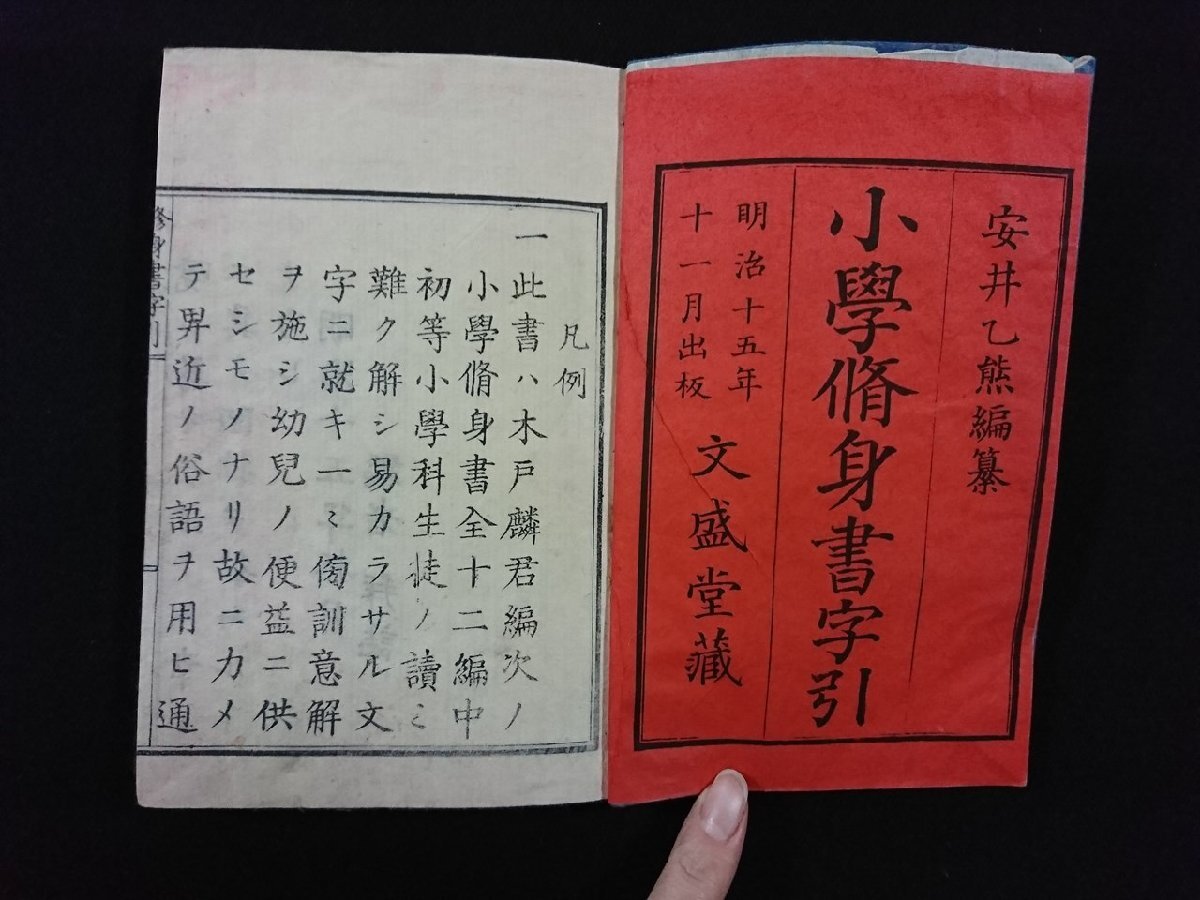 安井乙熊編纂
小學脩身書字引
明治十五年
十一月出板
文盛堂藏
凡例
一此書ハ木戸麟君編次ノ
小學脩身書全十二編中
初等小學科生徒ノ讀ミ
難ク解シ易カラサル文
字ニ就キ一ミ傍訓意解
ヲ施シ幼兒ノ便益ニ供
セシモノナリ故ニカメ
テ卑近ノ俗語ヲ用ヒ通
修身書字引